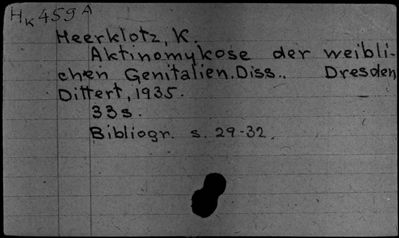 Hk 459 A
Meerklotz, K.
Aktinomykose der weibli-
chen Genitalien. Diss.. Dresden,
Dittert, 1935.
33s.
Bibliogr. s. 29-32.